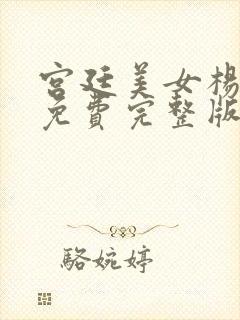 宫廷美女楊
免費完整版
駱婉婷